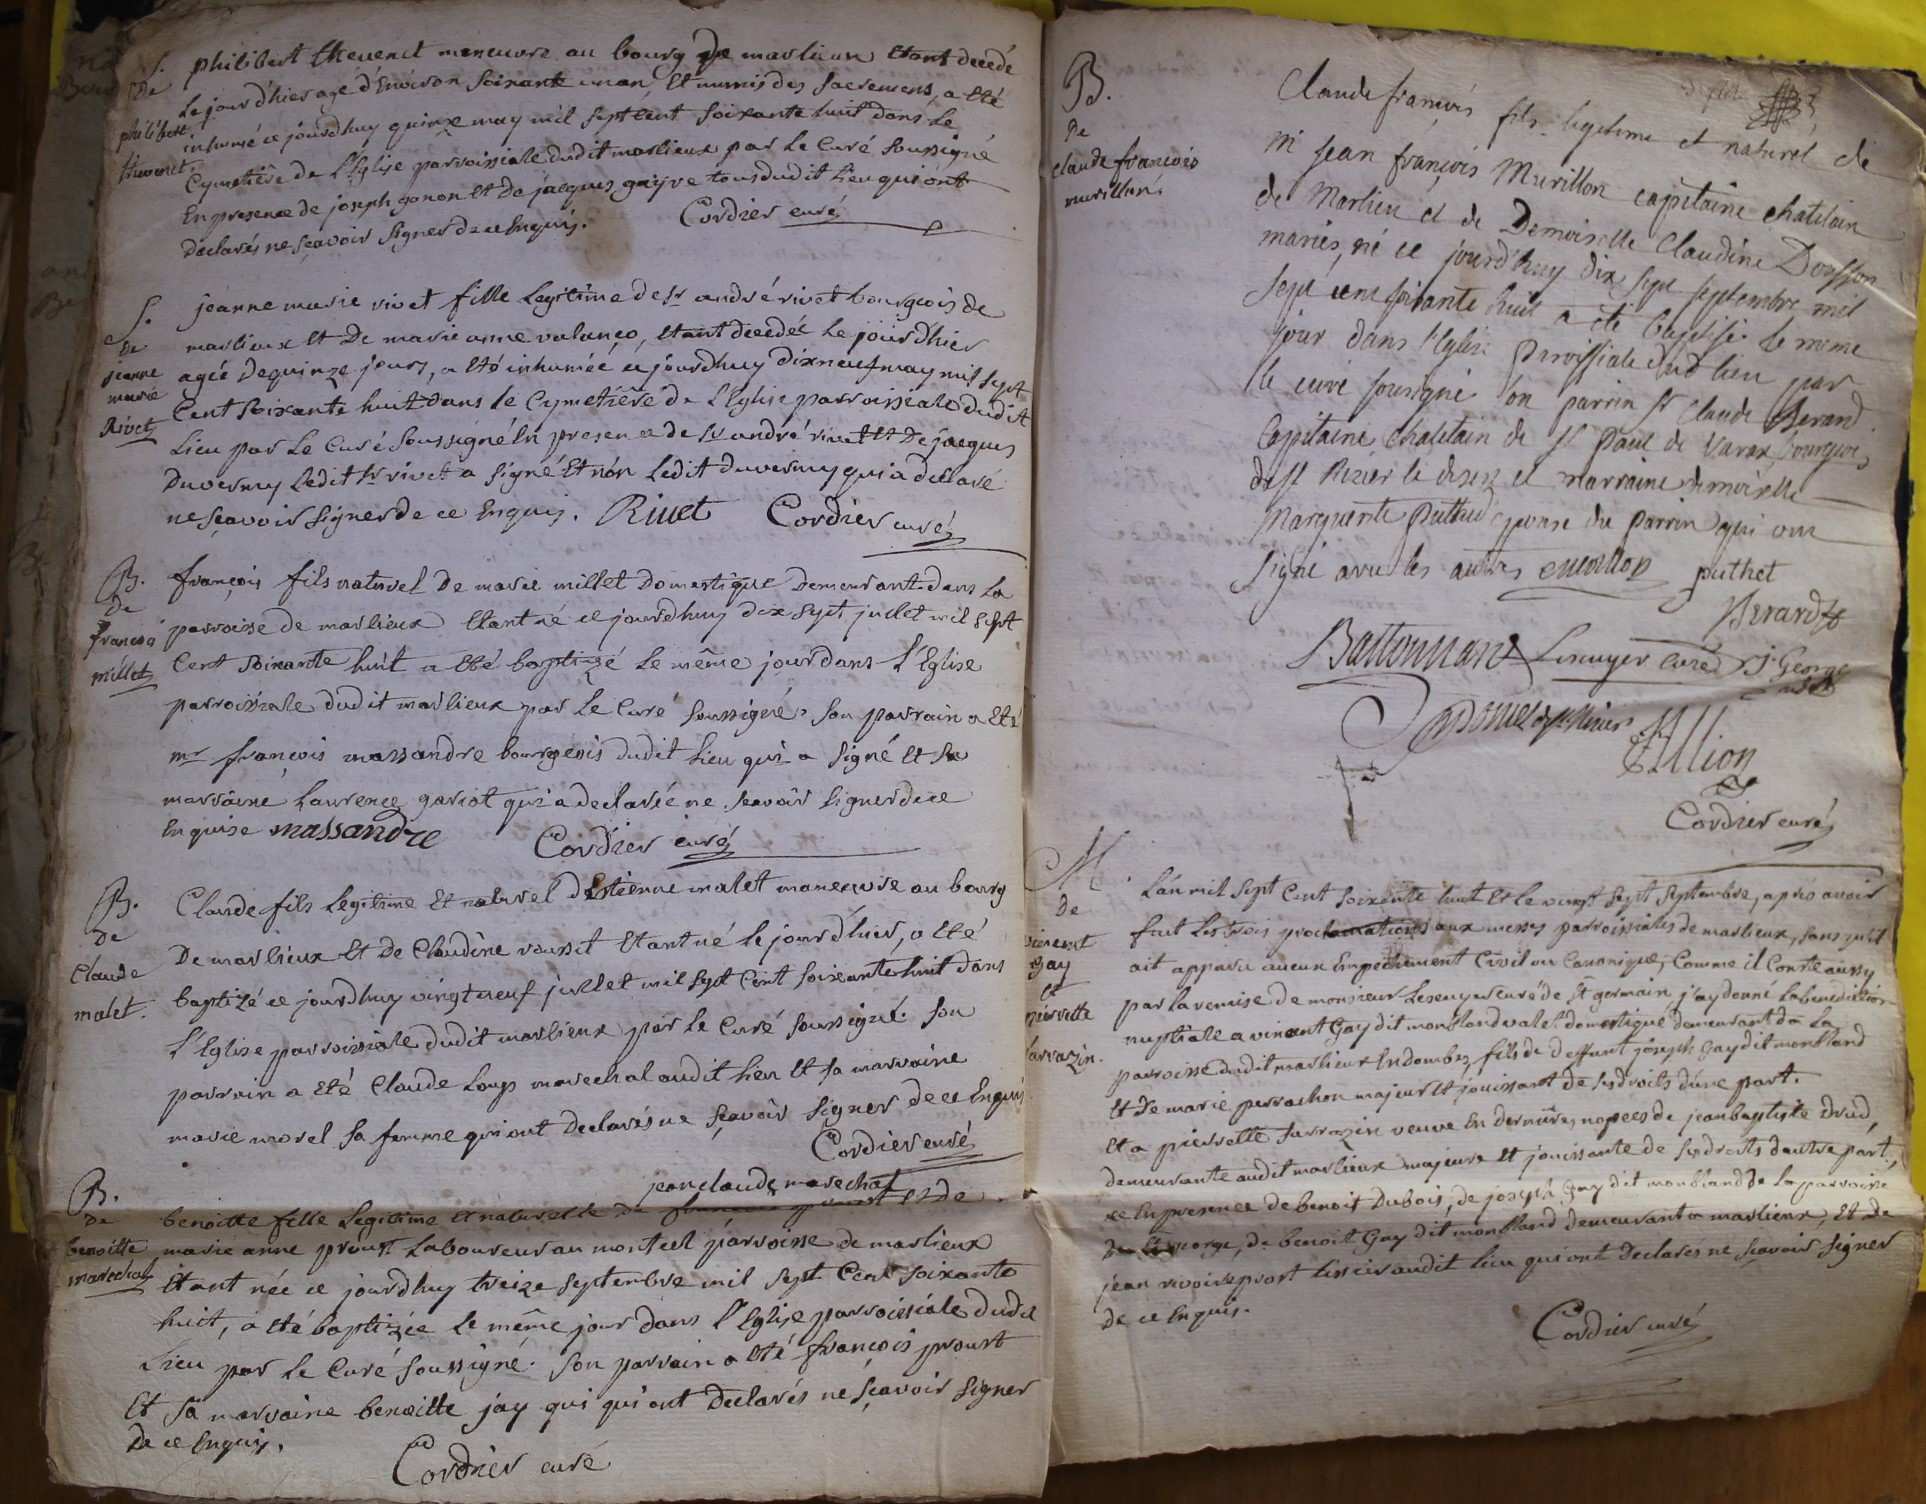 S.
De
philibert
thevenet.
philibert thevenet maneuvre au bourg de marlieux etant decedé
Le jour d'hier agé d'Environ soixante un an, Et munis des sacremens, a eté
inhumé ce jourdhuy quinze may mil sept cent soixante huit dans le
Cymetière de L'Eglise parroissiale dudit marlieux par Le Curé soussigné
En presence de joseph gonon Et De jacques gayve tous dudit Lieu qui ont
Declarés ne sçavoir signer de ce Enquis. Cordier curé
S.
De
jeanne
marie
Rivet
jeanne marie rivet fille Legitime de sr andré rivet bourgeois de
marlieux Et De marie anne valanço, Etant decedée Le jourd'hier
agée De quinze jours, a eté inhumée ce jourdhuy Dixneuf may mil sept
Cent soixante huit dans le Cymetière de L'Eglise parroissiale dudit
Lieu par Le Curé soussigné En presence de sr andré rivet Et De jacques
Duverny Ledit sr rivet a signé Et non Ledit duverny qui a declaré
ne sçavoir signer de ce Enquis. Rivet Cordier curé
B.
De
françois
millet
françois fils naturel De marie millet Domestique Demeurant dans La
parroisse de marlieux Etant né ce jourdhuy dix sept juillet mil sept
Cent soixante huit a eté baptizé Le même jour dans L'Eglise
parroissiale dudit marlieux par Le Curé soussigné. Son parrain a eté
mr françois massandre bourgeois dudit Lieu qui a signé Et sa
marraine Laurence gariot qui a declarée ne sçavoir signer de ce
Enquise massandre Cordier curé
B.
De
Claude
malet.
Claude fils Legitime Et naturel d'Estienne malet maneuvre au bourg
De marlieux Et De Claudine roussit Etant né Le jour d'hier, a eté
baptizé ce jourdhuy vingt neuf juillet mil sept Cent soixante huit dans
L'Eglise parroissiale dudit marlieux par Le Curé soussigné. Son
parrain a eté Claude Loup marechal audit Lieu Et sa marraine
marie morel sa femme qui ont Declarés ne sçavoir signer De ce Enquis
Cordier curé
B.
De
benoitte
marechal
jean claude marechal
benoitte fille Legitime Et naturelle De françois prost et de
marie anne proust Laboureur au montcel parroisse de marlieux
Etant née ce jourdhuy treize septembre mil sept Cent soixante
huit, a eté baptizée Le même jour dans l'Eglise parroissiale dudit
Lieu par Le Curé soussigné. Son parrain a eté françois proust
Et sa marraine benoitte jay qui qui ont Declarés ne sçavoir signer
De ce Enquis.
Cordier curé
B.
De
claude françois
murillon.
Claude françois fils legitime et naturel de
mr jean françois Murillon capitaine chatelain
de Marlieu et de Demoiselle Claudine Dousson
mariés, né ce jourd'huy dix sept septembre mil
sept cent soixante huit a été baptisé le meme
jour dans l'Eglise Parroissiale dud lieu par
le curé sousigné son parrin sr Claude Berard
Capitaine chatelain de st Paul de Varax bourgeois
de st Nizier le desert et marraine demoiselle
Marguerite Puthet epouse du parrin qui ont
signé avec les autres Murillon puthet
Berard
Battonnard Lescuyer curé st George
Donnet de st Nizier
Allion
Cordier curé
M.
De
vincent
Gay
Et
pierrette
sarrazin.
L'an mil sept Cent soixante huit Et Le vingt sept septembre, après avoir
fait Les trois proclamations aux messes parroissiales de marlieux, sans qu'il
ait apparu aucun Empechement Civil ou Canonique, Comme il Conste aussy
par La remise de monsieur Lescuyer curé de St germain, j'ay donné La benediction
nuptiale a vincent Gay dit montbland valet domestique demeurant dà La
parroisse dudit marlieux En dombes, fils de deffunt joseph Gay dit montbland
Et De marie perrachon majeur Et jouissant de ses droits d'une part.
Et a pierrette sarrazin veuve En dernières nopces de jean baptiste Drud,
demeurante audit marlieux majeure Et jouissante de ses droits d'autre part.
ce En presence de benoit Dubois, de joseph Gay dit montbland De La parroisse
De St george, de benoit Gay dit montbland demeurant a marlieux, Et De
jean revoire prost tissier audit Lieu qui ont declarés ne sçavoir signer
De ce Enquis.
Cordier curé